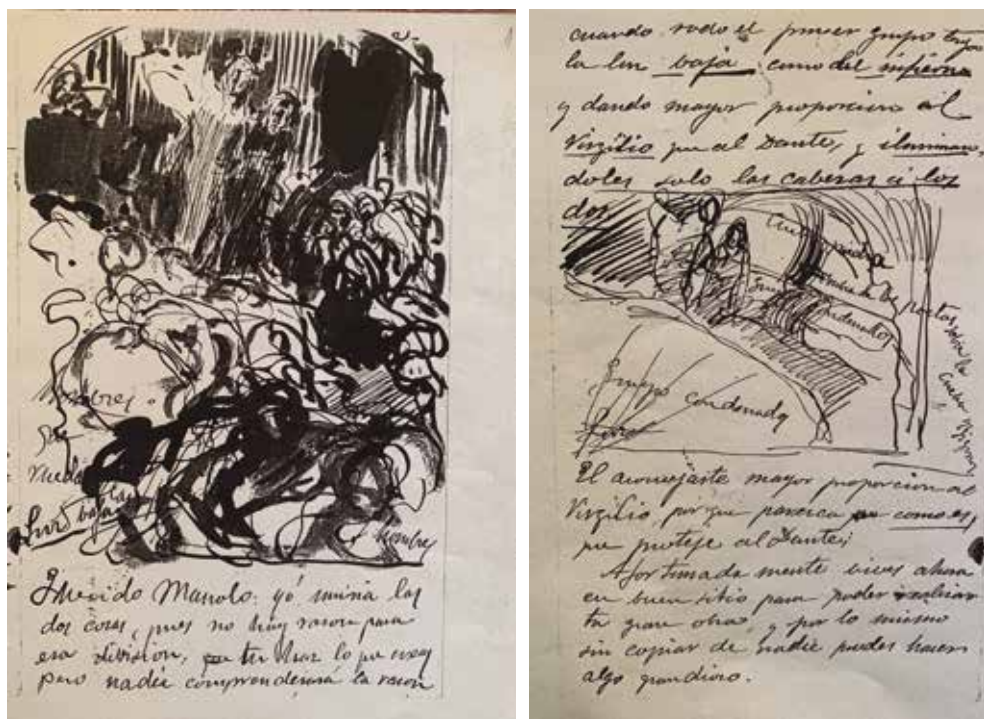 hombres
Luz baja
hombres
Querido Manolo: yo uniria las
dos cosas, pues no hay razon para
esa division, tu haz lo que creas
pero nadie comprenderia la razon
cuando todo el primer grupo tuyo
la luz baja como del infierno
y dando mayor proporcion al
Virgilio que al Dante, y iluminan
doles solo las cabezas a los
dos
sombra de los poetas sobre la
condenados
Grupo condenados
Luz
El aconsejarte mayor proporcion al
Virgilio, por que parezca como es,
que proteje al Dante;
Afortunada mente vives ahora
en buen sitio para poder realizar
tu gran obra, y por lo mismo
sin copiar de nadie puedes hacer
algo grandioso.